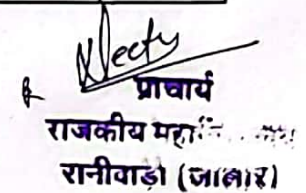 प्राचार्य
राजकीय महा
रानीवाड़ा (जालोर)